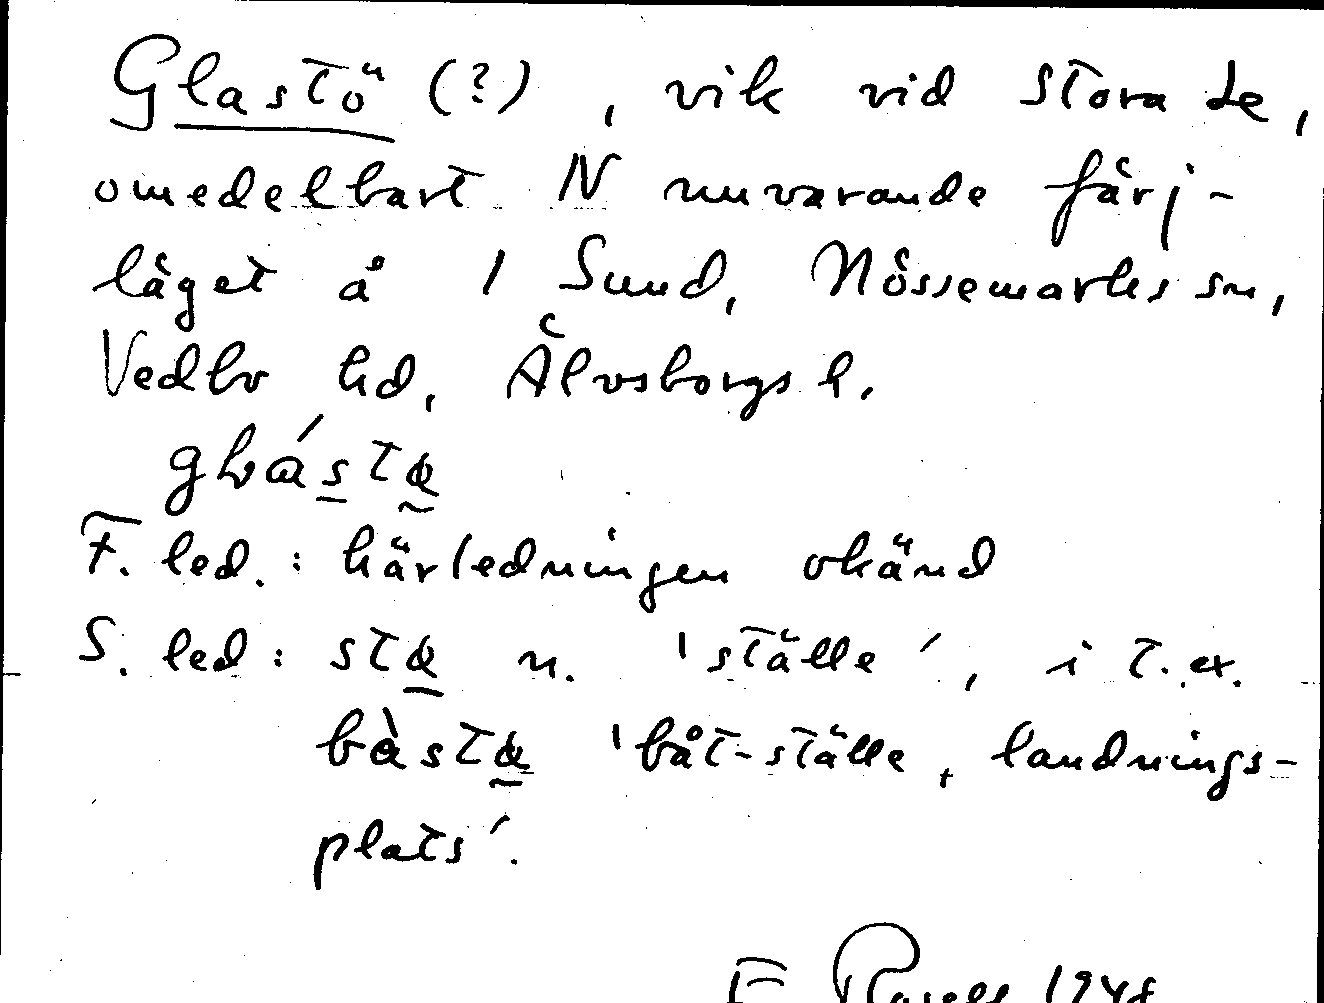 Glastö (?), vik vid Stora Le,
omedelbart N nuvarande färj-
läget å 1 Sund, Nössemarks sn,
Vedbo hd, Älvsborgs l.
F. led. : härledningen okänd
S. led : n. 'ställe', i t.ex.
'båt-ställe, landnings-
plats'.
E